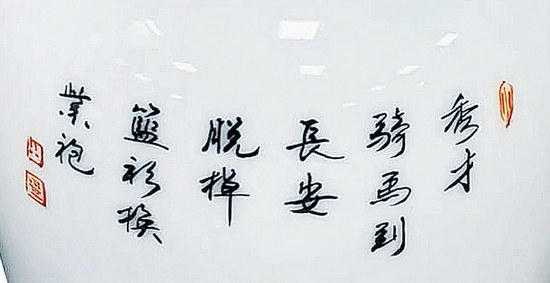 秀才
騎馬到
長安
脱掉
籃衫换
紫袍